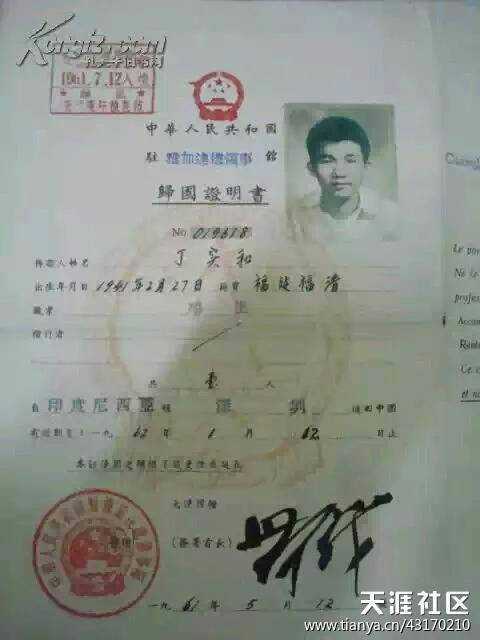 Kongfz.com
孔夫子旧书网
1961.7.12入境
中華人民共和國
駐雅加達總領事館
歸國證明書
No 019618
持證人姓名 丁实和
出生年月日 1941年2月27日 籍貫 福建福清
職業 学生
偕行者
共 壹 人
自 印度尼西亞 經 深圳 返回中國
有效期至一九62年1月12日止
(簽署首長)
一九61年5月12
Le por
Ne le
profes
Accom
Rentr
Ce c
et n
天涯社区
www.tianya.cn/43170210